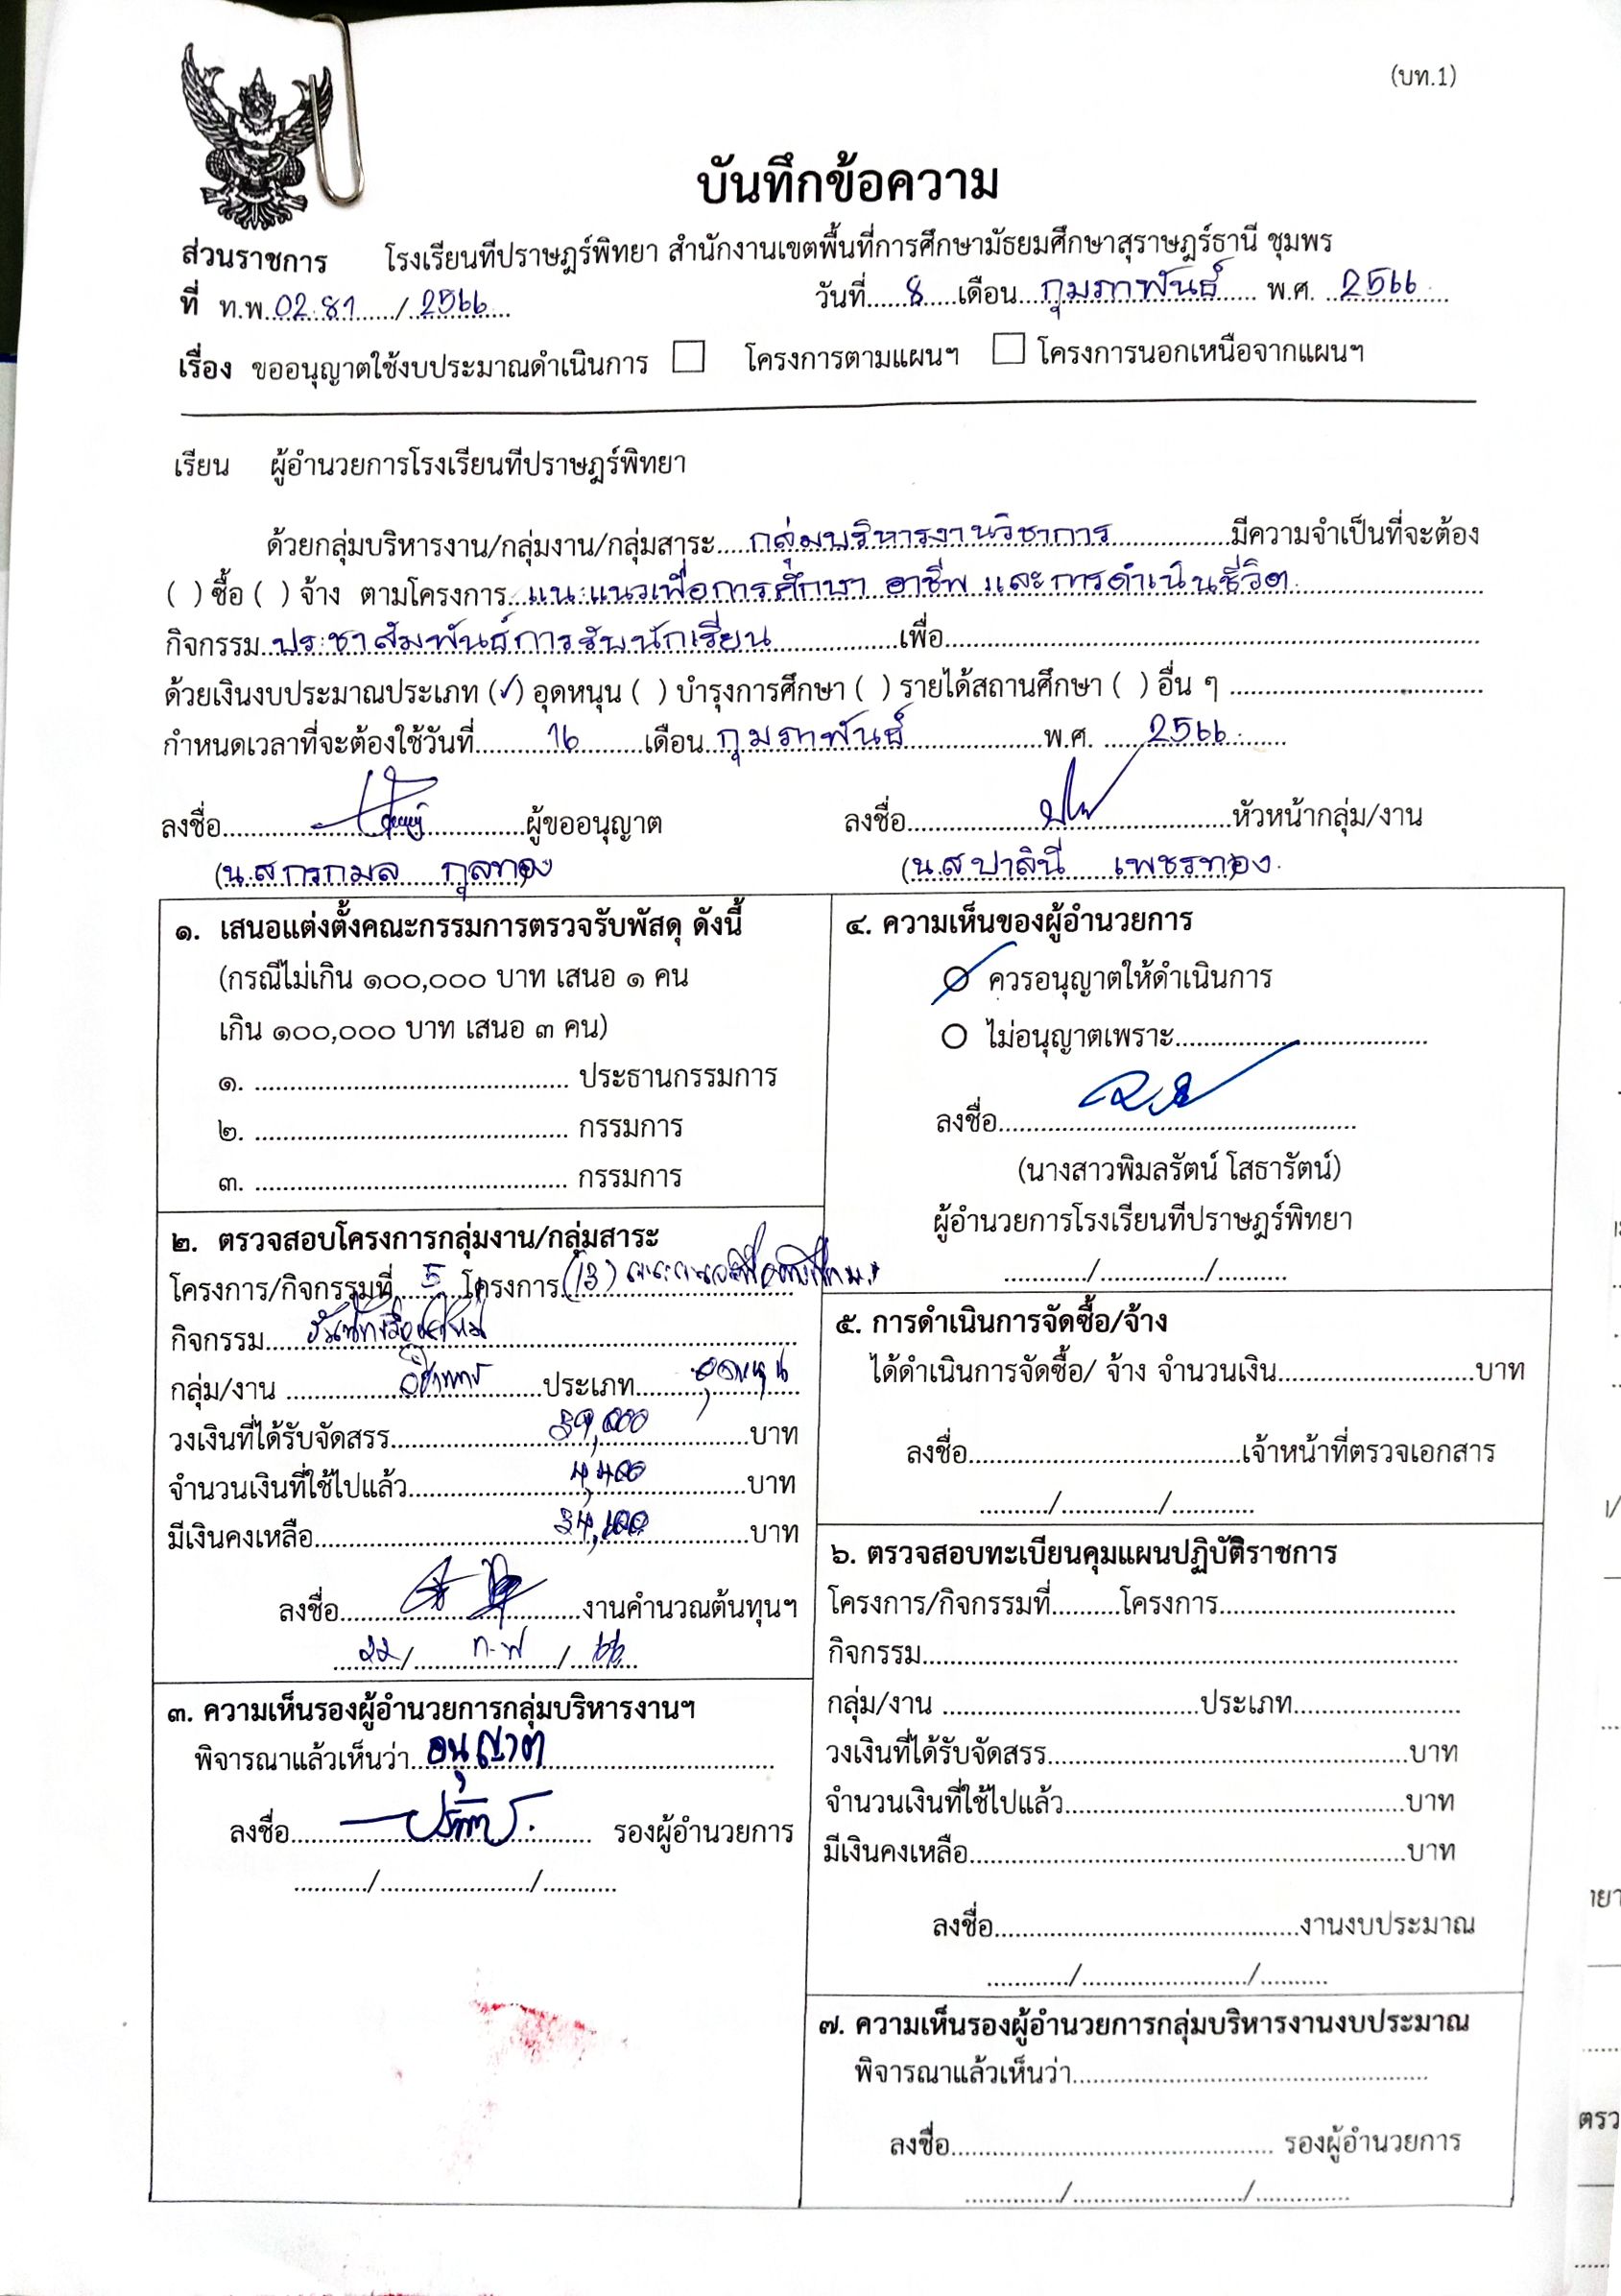 (บท.1)
บันทึกข้อความ
ส่วนราชการ โรงเรียนทีปราษฎร์พิทยา สำนักงานเขตพื้นที่การศึกษามัธยมศึกษาสุราษฎร์ธานี ชุมพร
ที่ ท.พ. 02.81 / 2566 วันที่ 8 เดือน กุมภาพันธ์ พ.ศ. 2566
เรื่อง ขออนุญาตใช้งบประมาณดำเนินการ ☐ โครงการตามแผนฯ ☐ โครงการนอกเหนือจากแผนฯ
เรียน ผู้อำนวยการโรงเรียนทีปราษฎร์พิทยา
ด้วยกลุ่มบริหารงาน/กลุ่มงาน/กลุ่มสาระ กลุ่มบริหารงานวิชาการ มีความจำเป็นที่จะต้อง
( ) ซื้อ ( ) จ้าง ตามโครงการ แนะแนวเพื่อการศึกษา อาชีพ และการดำเนินชีวิต
กิจกรรม ประชาสัมพันธ์การรับนักเรียน เพื่อ
ด้วยเงินงบประมาณประเภท (✓) อุดหนุน ( ) บำรุงการศึกษา ( ) รายได้สถานศึกษา ( ) อื่น ๆ
กำหนดเวลาที่จะต้องใช้วันที่ 16 เดือน กุมภาพันธ์ พ.ศ. 2566
ลงชื่อ ผู้ขออนุญาต ลงชื่อ หัวหน้ากลุ่ม/งาน
(น.ส กรกมล กุลทอง) (น.ส ปาลินี เพชรทอง)
๑. เสนอแต่งตั้งคณะกรรมการตรวจรับพัสดุ ดังนี้
(กรณีไม่เกิน ๑๐๐,๐๐๐ บาท เสนอ ๑ คน
เกิน ๑๐๐,๐๐๐ บาท เสนอ ๓ คน)
๑. ประธานกรรมการ
๒. กรรมการ
๓. กรรมการ
๒. ตรวจสอบโครงการกลุ่มงาน/กลุ่มสาระ
โครงการ/กิจกรรมที่ 5 โครงการ (13)
กิจกรรม
กลุ่ม/งาน วิชาการ ประเภท อุดหนุน
วงเงินที่ได้รับจัดสรร บาท
จำนวนเงินที่ใช้ไปแล้ว 4,400 บาท
มีเงินคงเหลือ บาท
ลงชื่อ งานคำนวณต้นทุนฯ
22 / ก.พ / 66
๓. ความเห็นรองผู้อำนวยการกลุ่มบริหารงานฯ
พิจารณาแล้วเห็นว่า อนุญาต
ลงชื่อ รองผู้อำนวยการ
/ /
๔. ความเห็นของผู้อำนวยการ
ควรอนุญาตให้ดำเนินการ
ไม่อนุญาตเพราะ
ลงชื่อ
(นางสาวพิมลรัตน์ โสธารัตน์)
ผู้อำนวยการโรงเรียนทีปราษฎร์พิทยา
/ /
๕. การดำเนินการจัดซื้อ/จ้าง
ได้ดำเนินการจัดซื้อ/ จ้าง จำนวนเงิน บาท
ลงชื่อ เจ้าหน้าที่ตรวจเอกสาร
/ /
๖. ตรวจสอบทะเบียนคุมแผนปฏิบัติราชการ
โครงการ/กิจกรรมที่ โครงการ
กิจกรรม
กลุ่ม/งาน ประเภท
วงเงินที่ได้รับจัดสรร บาท
จำนวนเงินที่ใช้ไปแล้ว บาท
มีเงินคงเหลือ บาท
ลงชื่อ งานงบประมาณ
/ /
๗. ความเห็นรองผู้อำนวยการกลุ่มบริหารงานงบประมาณ
พิจารณาแล้วเห็นว่า
ลงชื่อ รองผู้อำนวยการ
/ /